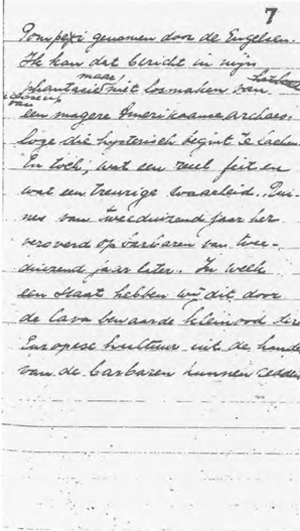 7
Pompeji genomen door de Engelsen.
Ik kan dat bericht in mijn
phantasie maar niet losmaken van
van een magere Amerikaanse archaeo-
loge die hysterisch begint te lachen.
En toch, wat een reëel feit en
wat een treurige waarheid. Rui-
nes van tweeduizend jaar her
veroverd op barbaren van twee-
duizend jaar later. In welk
een staat hebben wij dit, door
de lava bewaarde kleinood der
Europese kultuur uit de handen
van de barbaren kunnen redden